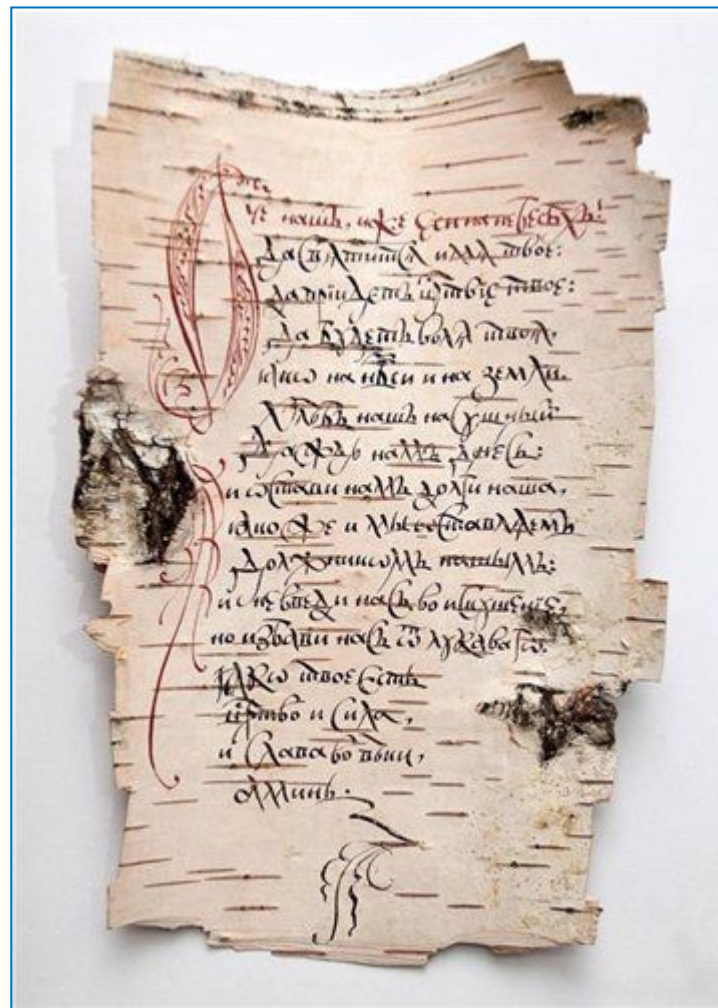 Оч҃е нашъ, иже єси на небесѣхъ!
да свѧтитсѧ имѧ твоє:
да прїидетъ црⷭ҇твїє твоє:
да будетъ волѧ твоѧ,
ꙗкѡ на нб҃си и на земли.
Хлѣбъ нашъ насущный
даждь намъ днесь:
и ѡстави намъ долги наша,
ꙗкоже и мы оставлѧемъ
должникомъ нашымъ:
и не введи насъ во искушенїе,
но избави насъ ѿ лукавагѡ.
Ꙗкѡ твоє єсть
црⷭ҇тво и сила,
и слава во вѣки,
аминь.